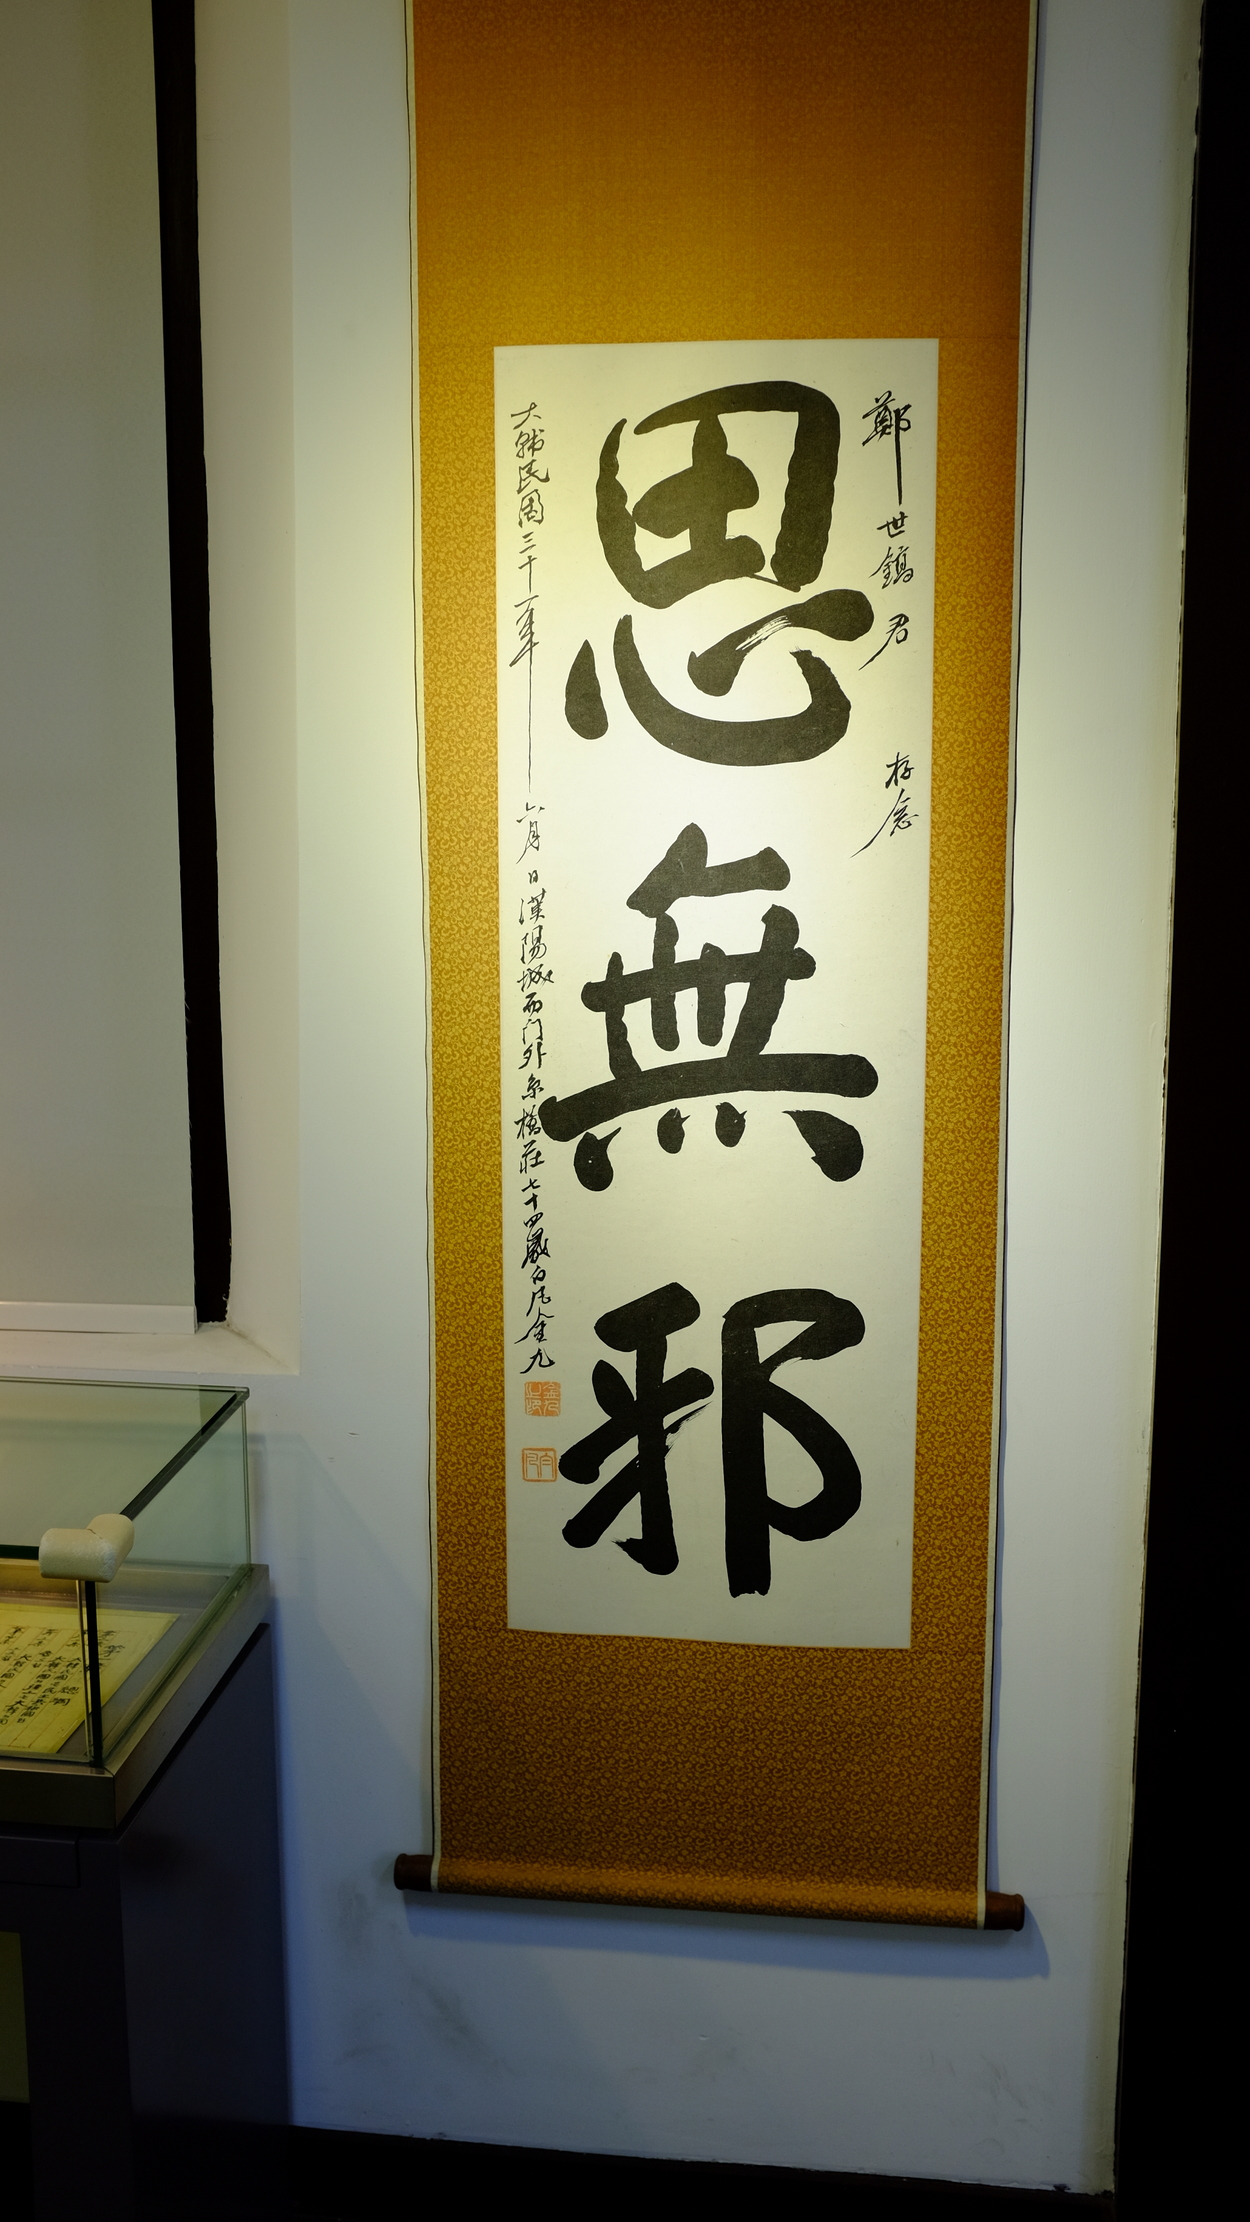 鄭世鎬君 存念
思無邪
大韓民國三十一年六月 日漢陽城西门外京橋莊七十四歲白凡金九
金九之印
白凡